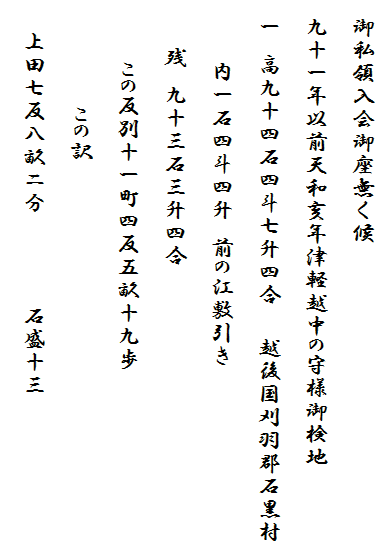 御私領入会御座無く候
九十一年以前天和亥年津軽越中の守様御検地
一　高九十四石四斗七升四合　越後国刈羽郡石黒村
内一石四斗四升　前の江敷引き
残　九十三石三升四合
この反別十一町四反五畝十九歩
この訳
上田七反八畝二分　石盛十三